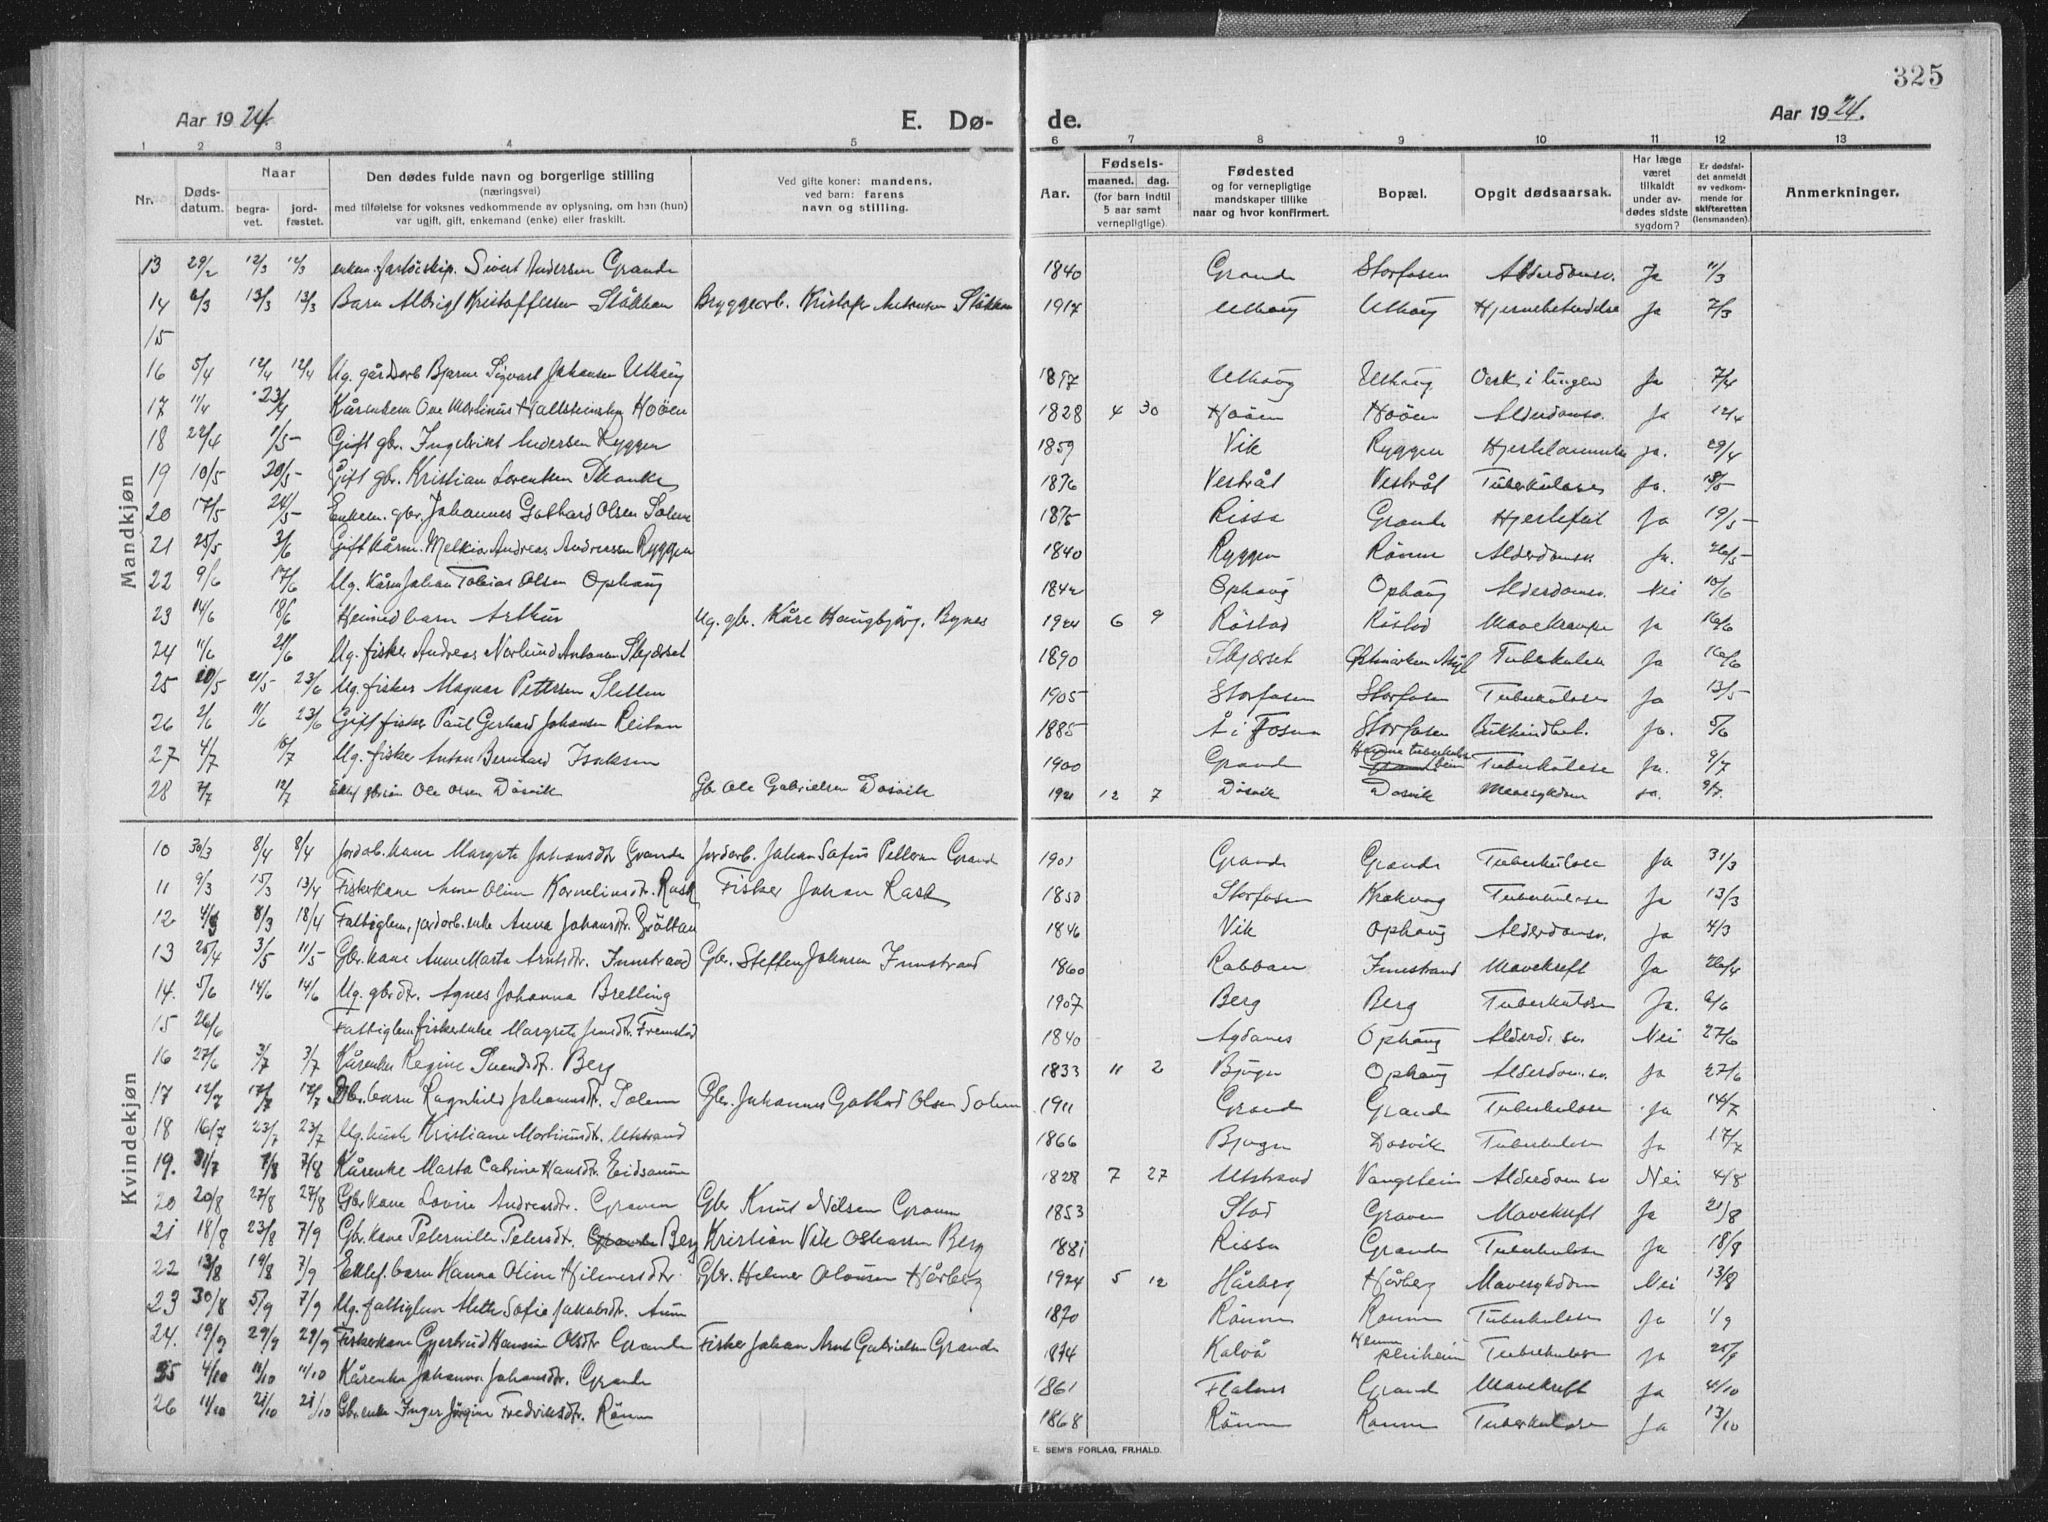 325
Aar 1924. E. Dø- de. Aar 1924.
1 2 3 4 5 6 7 8 9 10 11 12 13
Nr.
Døds-datum.
Naar
begra-vet.
jord-fæstet.
Den dødes fulde navn og borgerlige stilling
(næringsvei)
med tilføielse for voksnes vedkommende av oplysning, om han (hun)
var ugift, gift, enkemand (enke) eller fraskilt.
Ved gifte koner: mandens,
ved barn: farens
navn og stilling.
Aar.
Fødsels-
maaned. dag.
(for barn indtil
5 aar samt
vernepligtige)
Fødested
og for vernepligtige
mandskaper tillike
naar og hvor konfirmert.
Bopæl.
Opgit dødsaarsak.
Har læge
været
tilkaldt
under av-
dødes sidste
sygdom?
Er dødsfal-
det anmeldt
av vedkom-
mende for
skifteretten
(lensmanden).
Anmerkninger.
Mandkjøn
13 29/2 12/3 12/3 Sivert Andersen Grande 1840 Grande Storfosen Alderdomsv. Ja 11/3
14 6/3 13/3 13/3 Barn Kristoffersen Stâkkan Bryggearb. Kristofer Antonsen Stâkkan 1917 Uthaug Uthaug Hjernebetendelse Ja 7/3
15
16 5/4 12/4 12/4 Ug. gårdarb Bjarne Sigvart Johansen Uthaug 1897 Uthaug Uthaug i lungen Ja 7/4
17 11/4 23/4 Ove Martinus Hallsteinsen Hoöen 1828 4 30 Hoöen Hoöen Alderdomsv. Ja 12/4
18 22/4 1/5 Gift gbr. Ingebrikt Andersen Ryggen 1859 Vik Ryggen Hjertelammelse ja. 29/4
19 10/5 20/5 Gift gbr. Kristian Lorentsen 1876 Vestråt Vestråt Tuberkulose Ja. 13/5
20 17/5 24/5 Enkem. gbr. Johannes Gothard Olsen Solem 1875 Rissa Grande Hjertefeil Ja 19/5
21 25/5 3/6 Gift kårm. Melkior Andreas Andreassen Ryggen 1840 Ryggen Rönne Alderdomsv. Ja. 26/5
22 9/6 17/6 Ug. Kårm Johan Tobias Olsen Ophaug 1842 Ophaug Ophaug Alderdomsv. Nei 10/6
23 14/6 18/6 barn Arthur Ug. gbr. Kåre Haugbjörg, Bynes 1924 6 9 Röstad Röstad Mavekrampe Ja 16/6
24 11/6 21/6 Ug. fisker Andreas Norlund Antonsen Skjærset 1890 Skjærset Östmarken Asyl Tuberkulose Ja 16/6
25 10/5 21/5 23/6 Ug. fisker Magnar Pettersen Sletten 1905 Storfosen Storfosen Tuberkulose Ja 13/5
26 2/6 11/6 23/6 Gift fisker Paul Gerhard Johansen Reitan 1885 Å i Fosna Storfosen Ja. 5/6
27 4/7 10/7 Ug. fisker Anton Bernhard Isaksen 1900 Grande Tuberkulose Ja. 9/7
28 7/7 12/7 Ole Olsen Dösvik Gbr Ole Gabrielsen Dösvik 1921 12 7 Dösvik Dösvik Mavesykdom ja. 9/7
Kvindekjøn
10 30/3 8/4 8/4 Jordarb. kone Margrete Johansdtr Grande Jordarb. Johan Sofus Pettersen Grande 1901 Grande Grande Tuberkulose Ja 31/3
11 9/3 15/3 13/4 Fiskerkone Anne Oline Kornelinsdtr. Rask Fisker Johan Rask 1850 Storfosen Kråkvåg Tuberkulose Ja 13/3
12 4/3 8/3 18/4 Fattiglem, jordarb. enke Anna Johansdtr. Gråltan 1846 Vik Ophaug Alderdomsv. Ja 4/3
13 25/4 3/5 11/5 Gbr. kone Anne Marta Arntsdtr. Innstrand Gbr. Steffen Johnsen Innstrand 1860 Rabban Innstrand Mavekreft Ja 26/4
14. 5/6 14/6 14/6 Ug. gbrdtr. Agnes Johanna Bretting 1907 Berg Berg Tuberkulose Ja. 6/6
15 26/6 Fattiglem fiskerenke Margrete Jensdtr. Fremstad 1840 Agdanes Ophaug Alderd. sv. Nei 27/6
16 27/6 3/7 3/7 Kårenke Regine Svendsdtr. Berg 1833 11 2 Bjugn Ophaug Alderdom. sv. Ja 27/6
17 12/7 17/7 17/7 Gbr. barn Ragnhild Johannesdtr. Solem Gbr. Johannes Gothard Olsen Solem 1911 Grande Grande Tuberkulose Ja 14/7
18 16/7 23/7 23/7 Ug. hush Kristiane Martinusdtr. Utstrand 1866 Bjugn Dosvik Tuberkulose Ja 17/7
19. 31/7 7/8 7/8 Kårenke Marta Catrine Hansdtr. Eidsaune 1828 7 27 Utstrand Vangstein Alderdom sv Nei 4/8
20 20/8 27/8 27/8 Gbr kone Lovise Andreasdtr. Graven Gbr Knut Nilsen Graven 1853 Stod Graven Mavekreft Ja 21/8
21 18/8 23/8 7/9 Gbr. kone Peternille Petersdtr. Grande Berg Kristian Vik Oskarsen Berg 1881 Rissa Grande Tuberkulose Ja 18/8
22 13/8 19/8 7/9 Ektef. barn Hanna Oline Hilmersdtr. Gbr. Helmer Olausen Hårberg 1924 5 12 Hårberg Hårberg Mavesykdom Nei 13/8
23 30/8 5/9 7/9 Ug. fattiglem Mette Sofie Jakobsdtr. Aune 1870 Rönne Rönne Tuberkulose Ja 1/9
24. 19/9 29/9 29/9 Fiskerkone Gjertrud Hansine Olsdtr Grande Fisker Johan Arnt Gabrielsen Grande 1874 Kalvå pleiheim Tuberkulose Ja 25/9
25 4/10 11/10 11/10 Kårenke Johanna Johansdtr. Grande 1861 Flatnes Grande Mavekreft Ja 4/10
26 11/10 21/10 21/10 Gbr enke Inger Jörgine Fredriksdtr. Rönne 1868 Rönne Rönne Tuberkulose Ja 13/10
E. SEM'S FORLAG, FR.HALD.